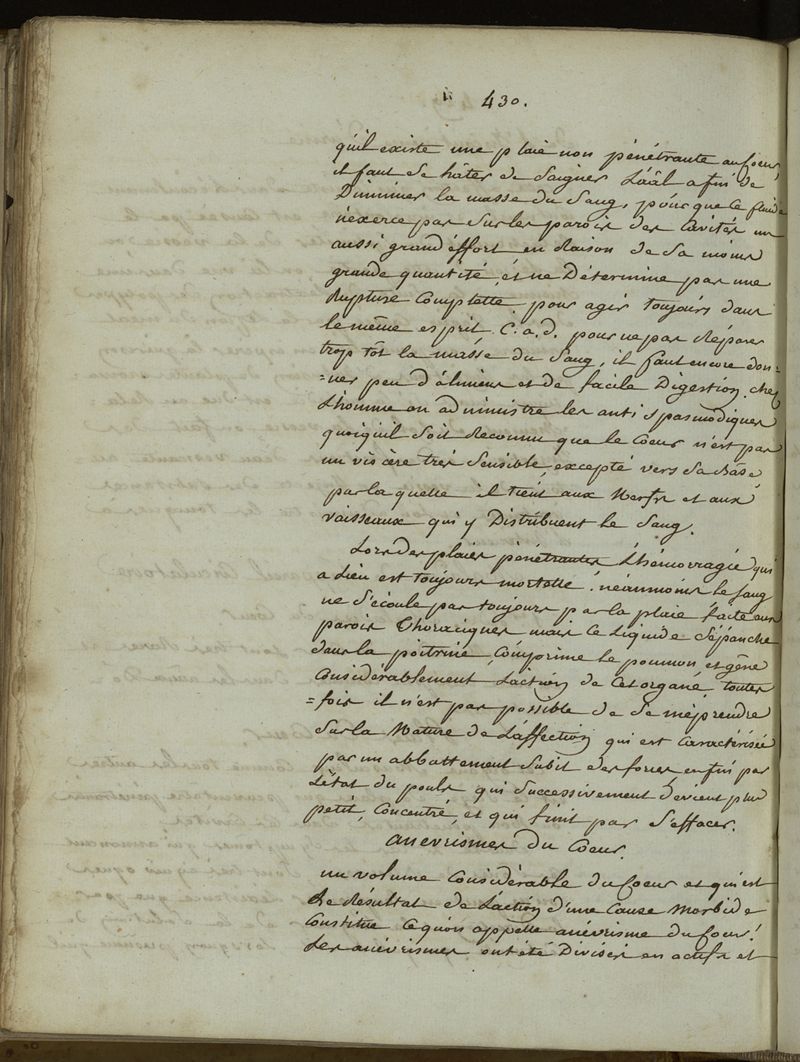 430.
qu'il existe une plaie non pénétrante au Coeur,
il faut se hâter de saigner L'aãl afin de
Diminuer la masse du Sang, pour que Ce fluide
n'exerce pas sur les parois des Cavités un
aussi grand éffort en Raison de sa moins
grande quantité, et ne Détermine pas une
Rupture Complette. pour agir toujours dans
le même esprit C.a.d. pour ne pas Réparer
trop tôt la masse du Sang, il faut encore don-
=ner peu d'alimens et de facile Digestion. chez
L'homme on administre les anti Spasmodiques
quoiqu'il soit Reconnu que le Coeur n'est pas
un viscère très Sensible, excepté vers sa Base
par la quelle il tient aux Nerfs et aux
vaisseaux qui y Distribuent le Sang.
Lors des plaies pénétrantes L'hémorragie qui
a Lieu est toujours mortelle. néanmoins le Sang
ne S'écoule pas toujours par la plaie faite aux
parois Thoraciques mais Ce Liquide S'épanche
dans la poitrine, Comprime le poumon et gêne
Considérablement L'action de Cet organe, toutes
=fois il n'est pas possible de se méprendre
sur la Nature de L'affection qui est Caractérisée
par un abbattement Subit des forces enfin par
L'état du pouls qui Successivement Devient plus
petit, Concentré, et qui finit par S'effacer.
anevrismes du Coeur.
un volume Considérable du Coeur et qui est
Le Résultat de L'action d'une Cause Morbide
Constitue Ce qu'on appelle anévrisme du Coeur.
Les anévrismes ont été Divisés en actifs et